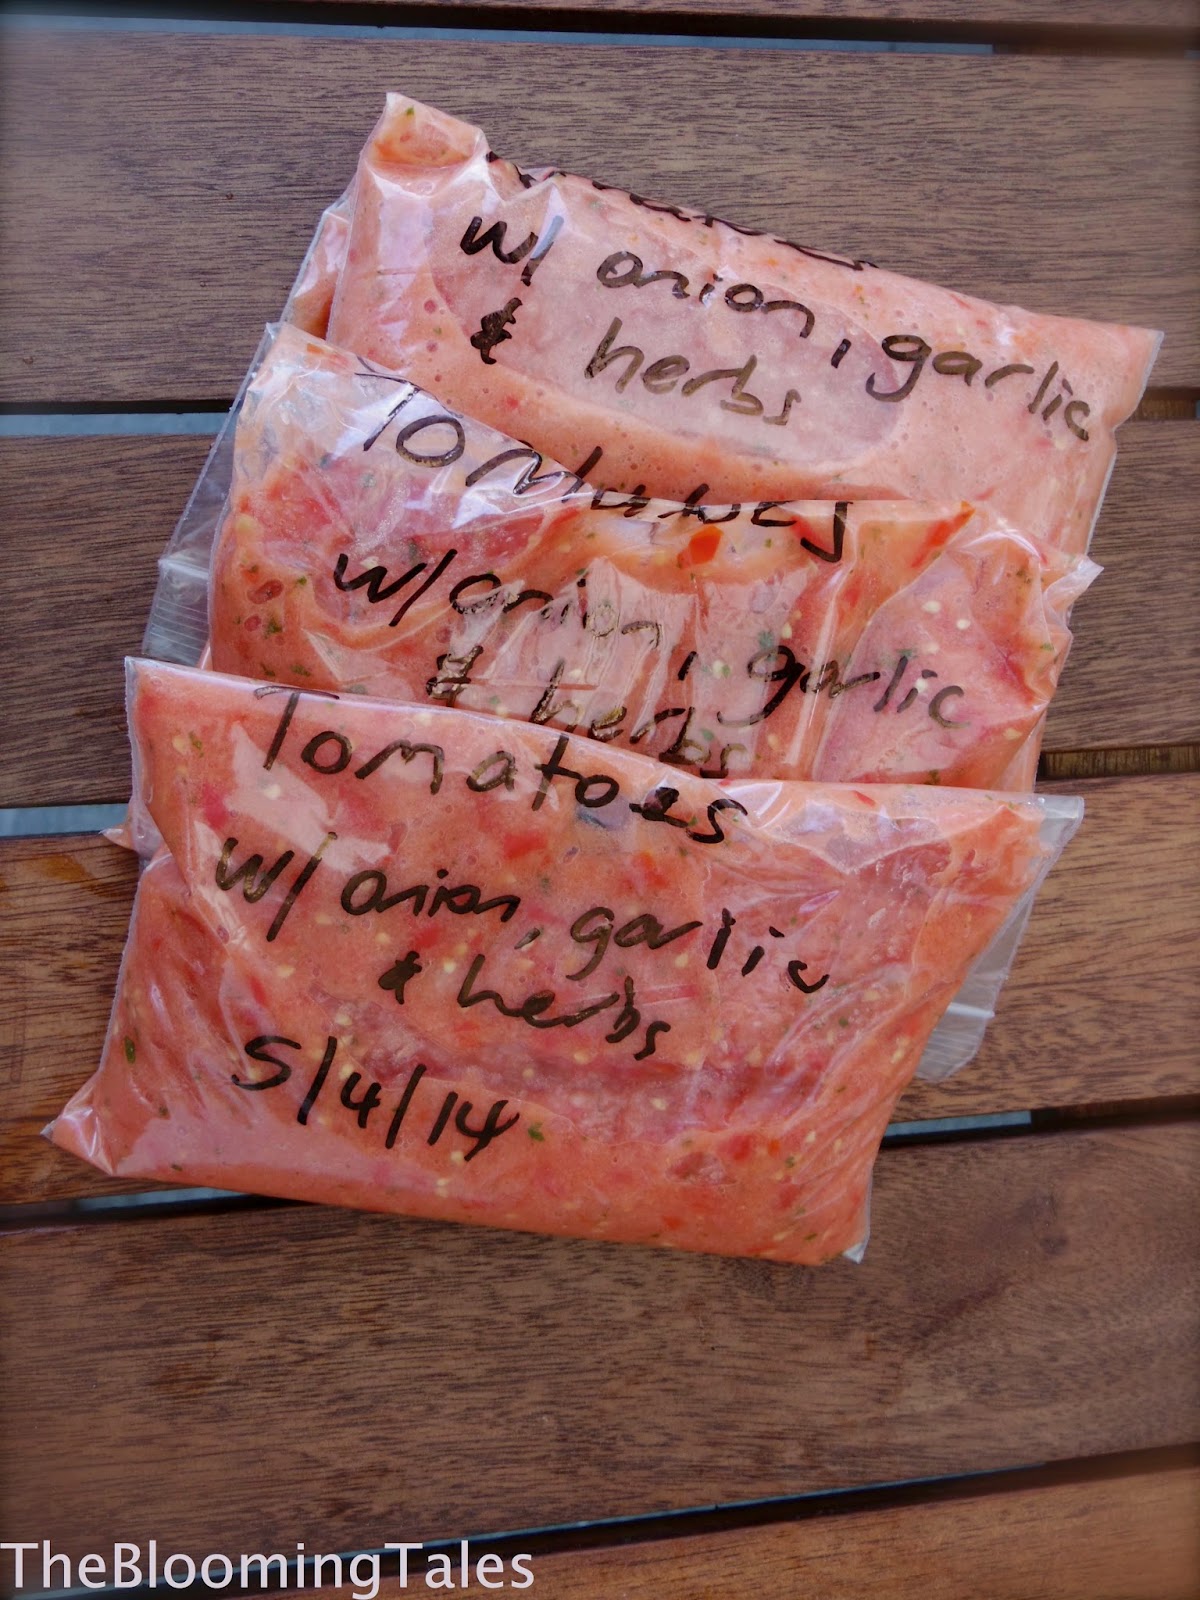 w/ onion, garlic
& herbs
Tomatoes
w/ onion, garlic
& herbs
Tomatoes
w/ onion, garlic
& herbs
5/4/14
TheBloomingTales